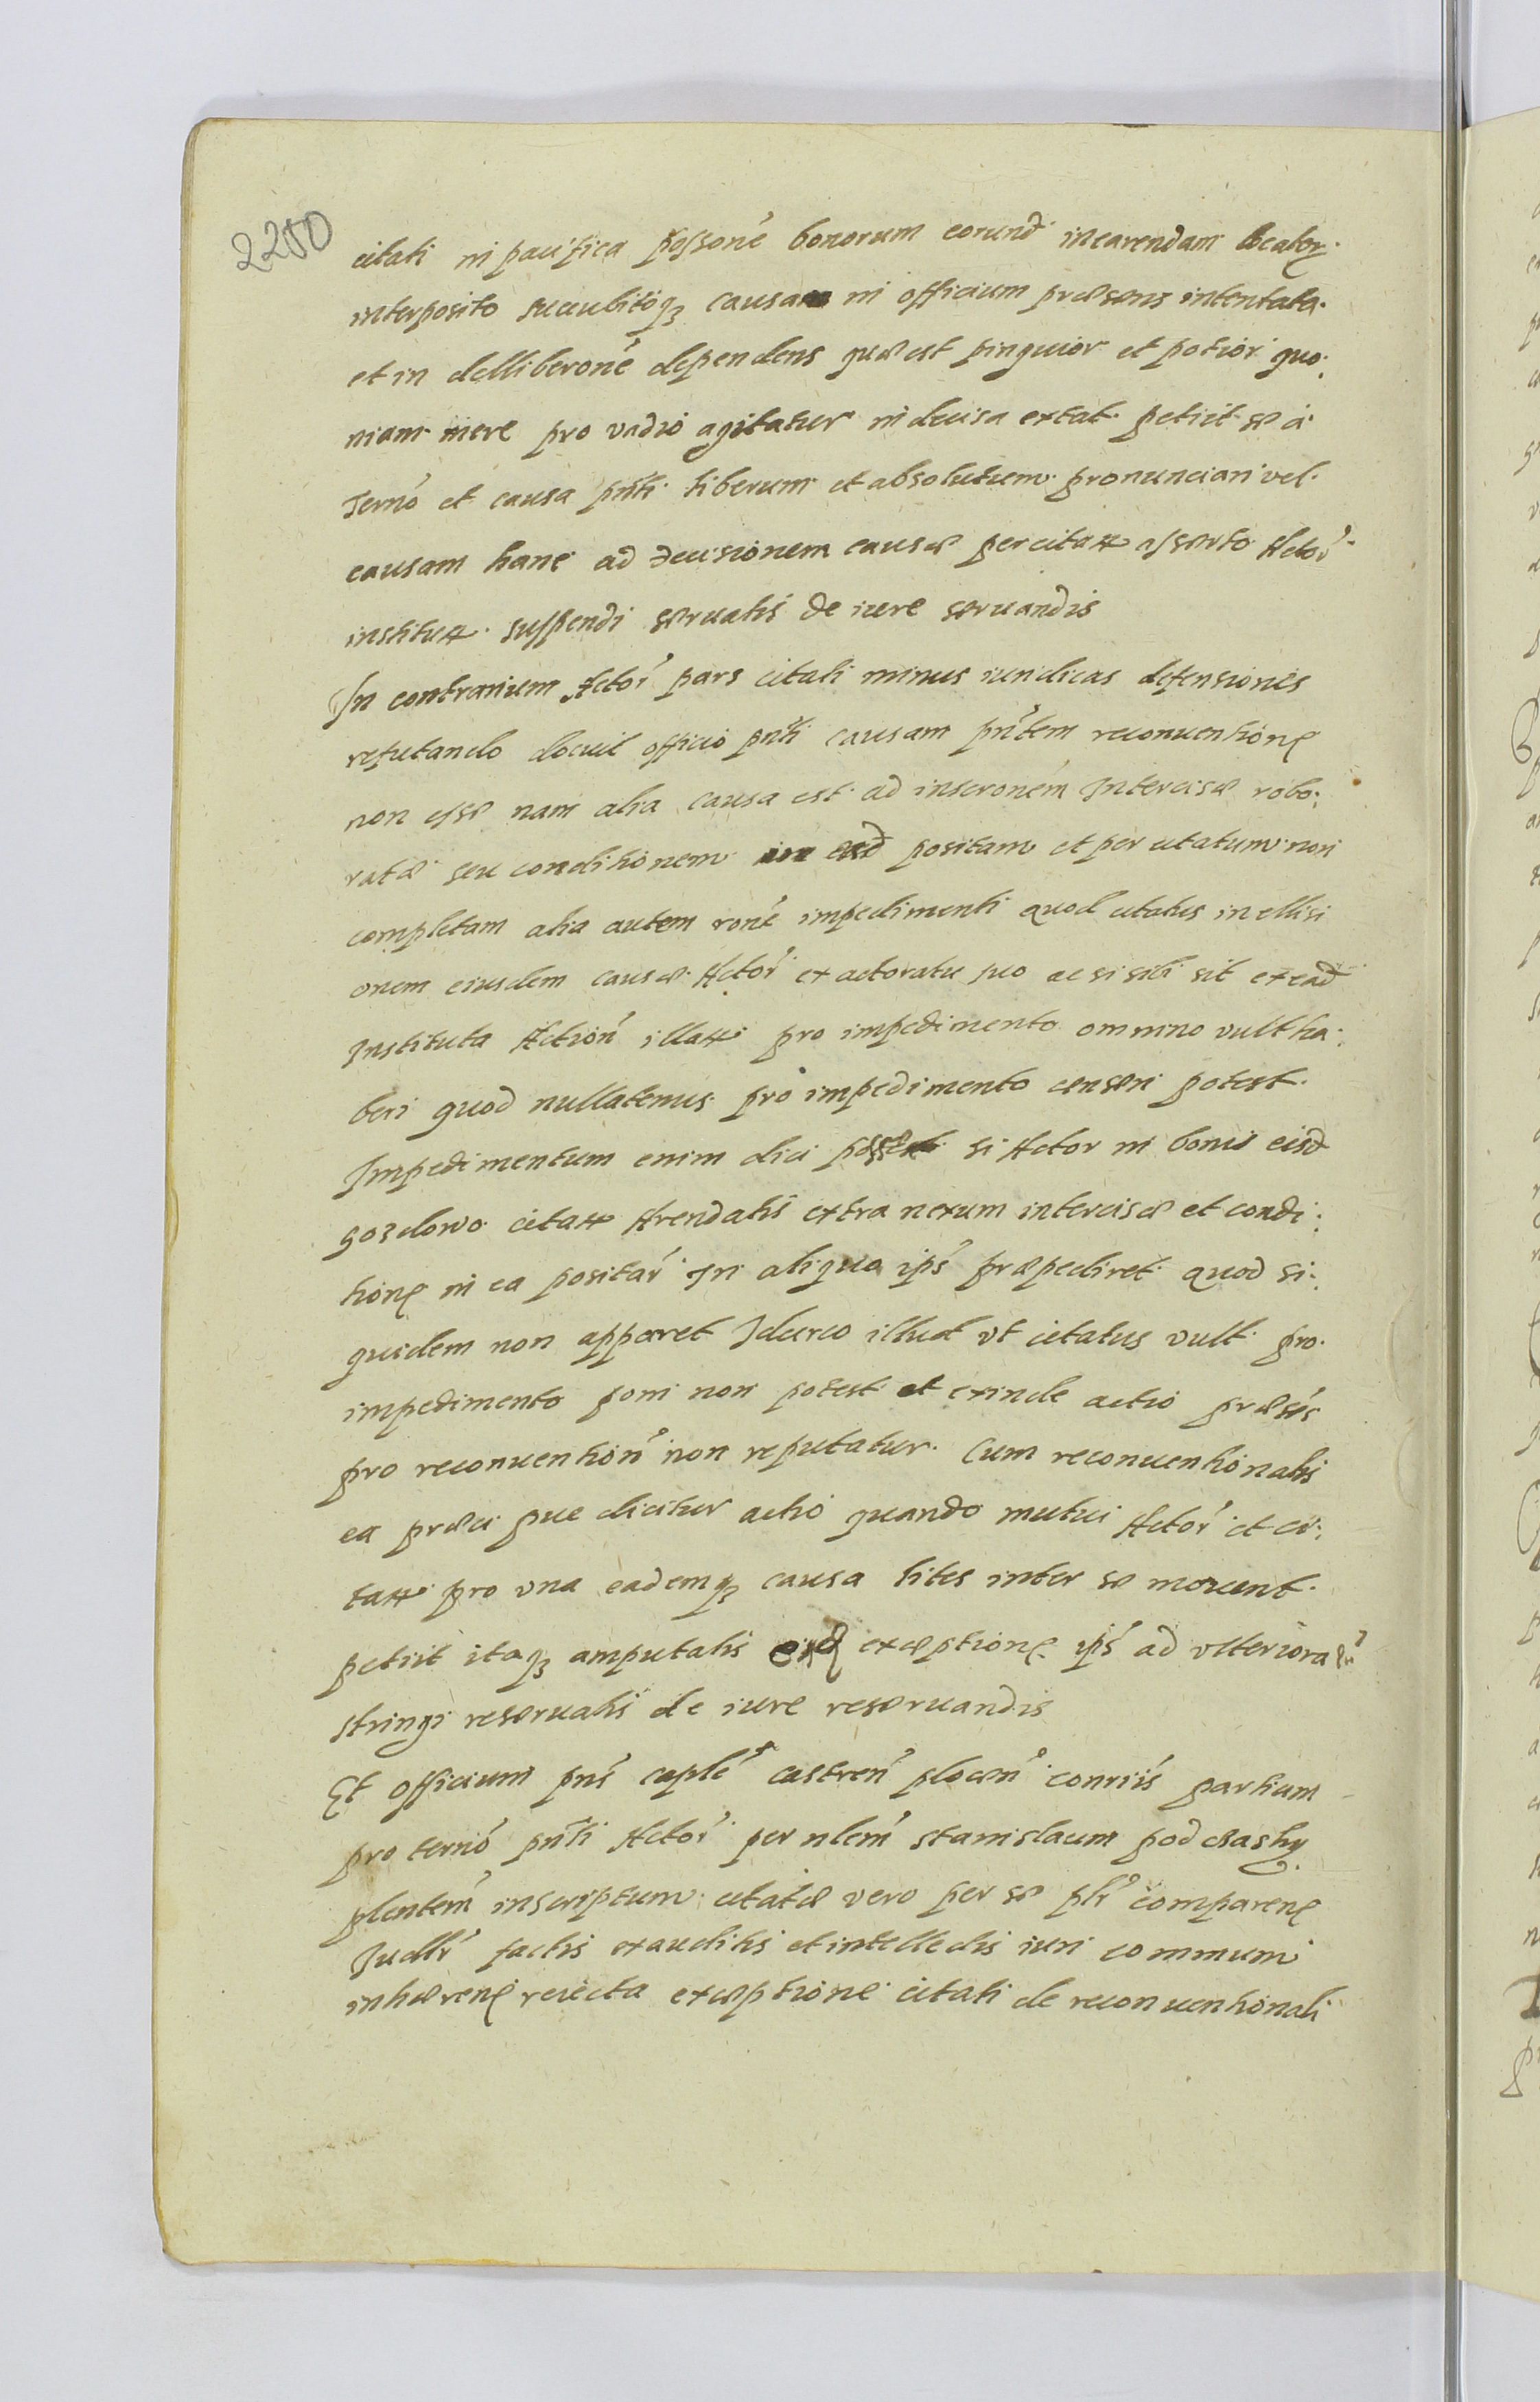 2280
citati in pacifica possone bonorum eorund in earendam locator.
interposito succubitoqз causam in officium præsens intentata.
et in delliberone dependens quæ est pinguior et potior quo:
niam mere pro vadio agitatur indecisa extat petiit se a
Terno et causa pnti liberum et absolutum pronunciari vel
causam hanc ad decisionem causæ per citatu asserto Actor
institutu suspendi servatis de iure servandis
In contrarium Actor pars citati minus iuridicas defensiones
refutando docuit officio pnti causam pntem reconventione
non esse nam alia causa est ad inscronem Intercisæ robo:
ratæ seu conditionem in ead positam et per citatum non
completam alia autem rone impedimenti quod citatus in ellisi
onem eiusdem causæ Actor ex actoratu suo ac si sibi sit ex ead
Instituta Action illatu pro impedimento omnino vult ha:
beri quod nullatenus pro impedimento censeri potest.
Impedimentum enim dici posset si Actor in bonis eisd
gozdowo citatu Arendatis extra nexum intercisæ et condi:
tione in ea positar In aliquo ips præpediret quod si:
quidem non apparet Idcirco illud vt citatus vult pro
impedimento poni non potest et exinde actio præsens
pro reconvention non reputatur. Cum reconventionalis
ea præcipue dicitur actio quando mutui Actor et ci:
tatu pro una eademqз causa lites inter se movent.
petiit itaqз amputatis eisd exceptione ips ad vlteriora
stringi reservatis de iure reservandis
Et officium pns caple castren plocen conrñs partium
pro terno pnti Actor per nlem Stanislaum podczasky
plentem inscriptum citatæ vero per se plr comparene
Judlr factis exauditis et intellectis iuri communi
inhærene reiecta exceptione citati de reconventionali